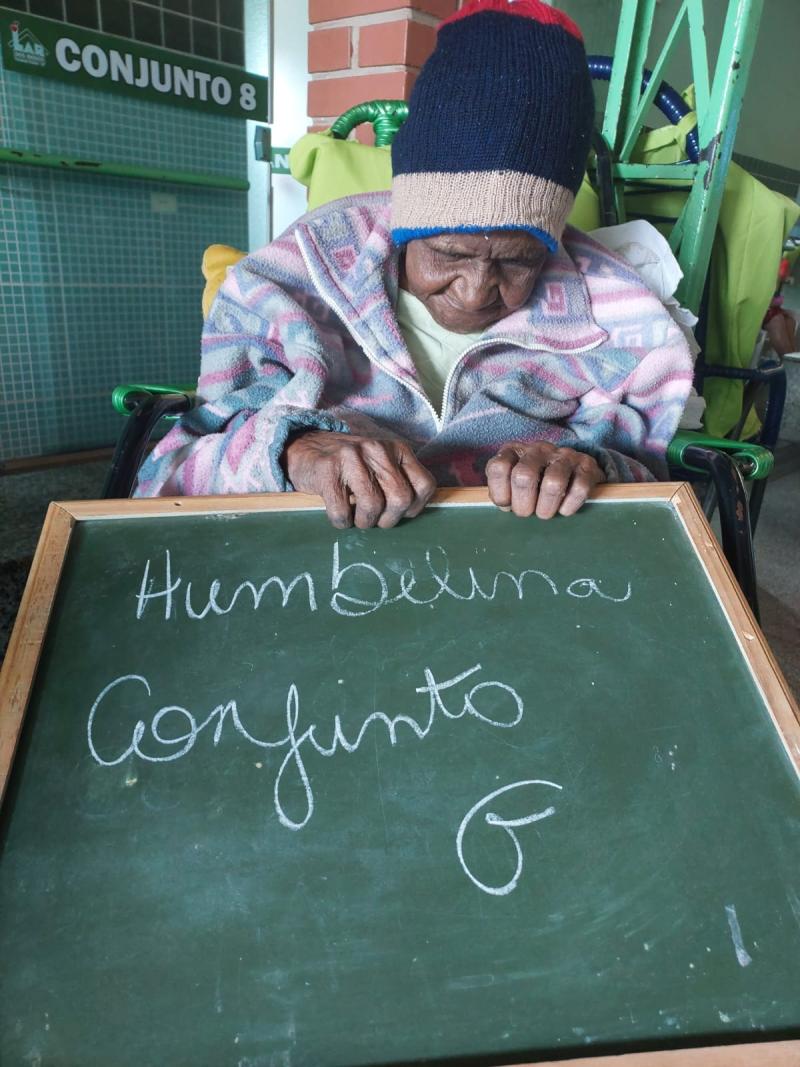 LAR
CONJUNTO 8
Humbelina
Conjunto
6